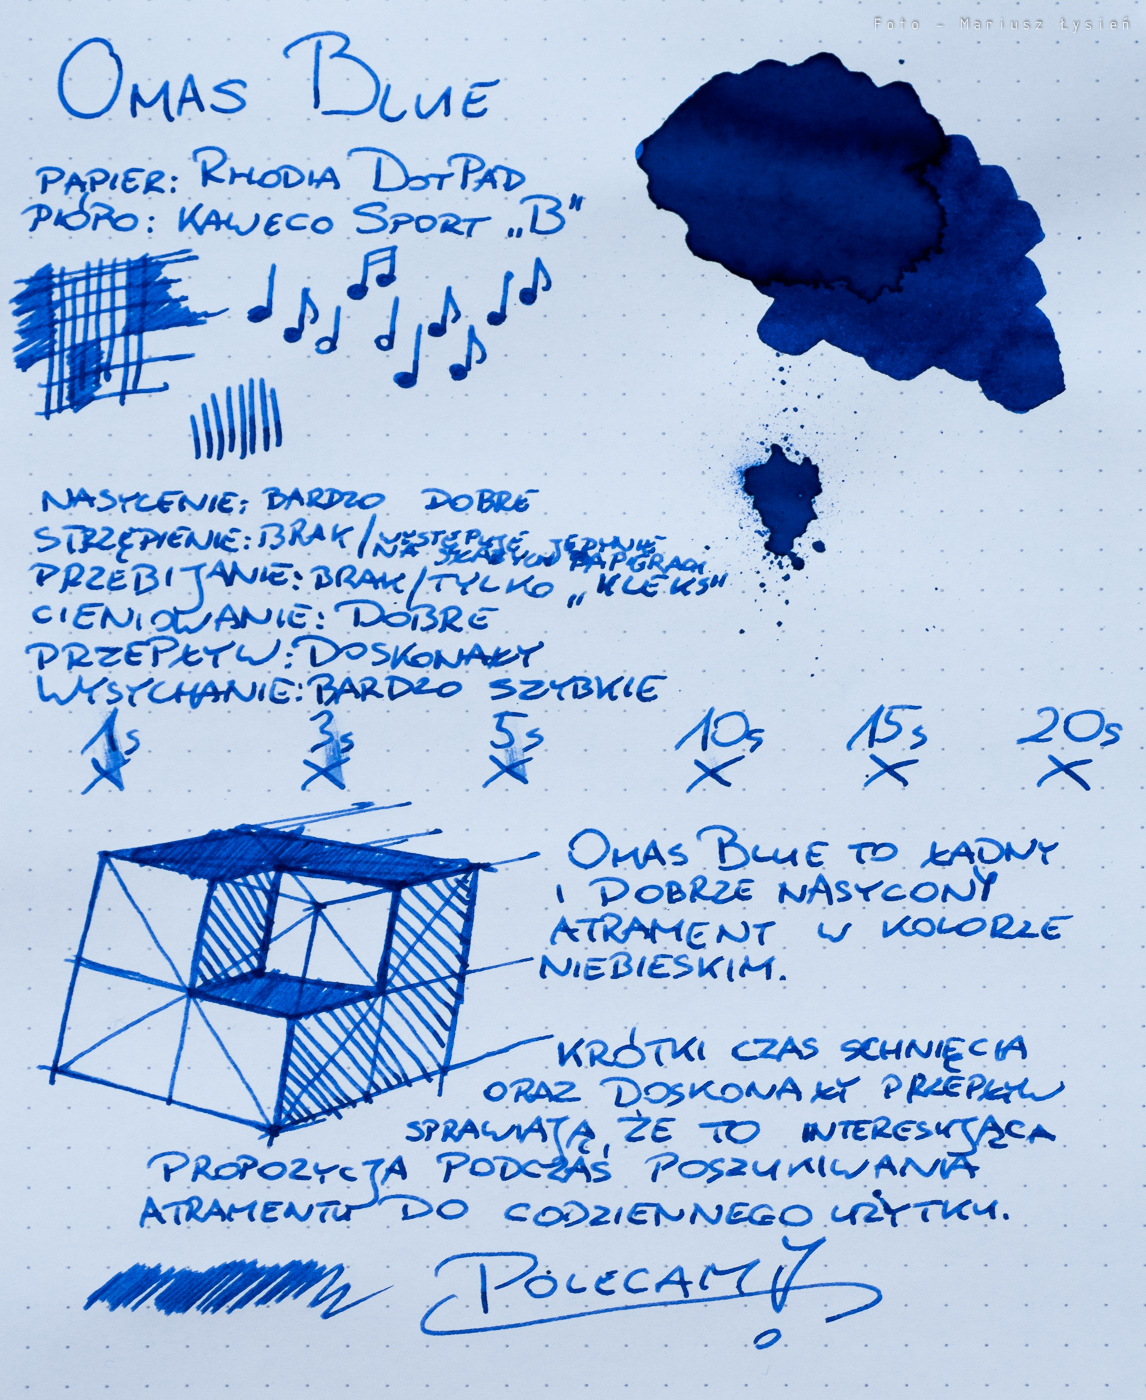 Foto - Mariusz Łysień
OMAS BLUE
PAPIER: RHODIA DOTPAD
PIÓRO: KAWECO SPORT „B"
NASYCENIE: BARDZO DOBRE
STRZĘPIENIE: BRAK / WYSTĘPUJE JEDYNIE
NA SŁABYCH PAPIERACH
PRZEBIJANIE: BRAK / TYLKO „KLEKS"
CIENIOWANIE: DOBRE
PRZEPŁYW: DOSKONAŁY
WYSYCHANIE: BARDZO SZYBKIE
1s 3s 5s 10s 15s 20s
X X X X X X
OMAS BLUE TO ŁADNY
I DOBRZE NASYCONY
ATRAMENT W KOLORZE
NIEBIESKIM.
KRÓTKI CZAS SCHNIĘCIA
ORAZ DOSKONAŁY PRZEPŁYW
SPRAWIAJĄ, ŻE TO INTERESUJĄCA
PROPOZYCJA PODCZAS POSZUKIWANIA
ATRAMENTU DO CODZIENNEGO UŻYTKU.
POLECAMY!